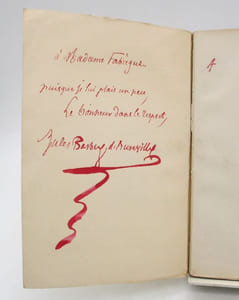 à Madame Fabrègue
puisque je lui plais un peu,
Le bonheur dans le respect,
Jules Barbey d'Aurevilly